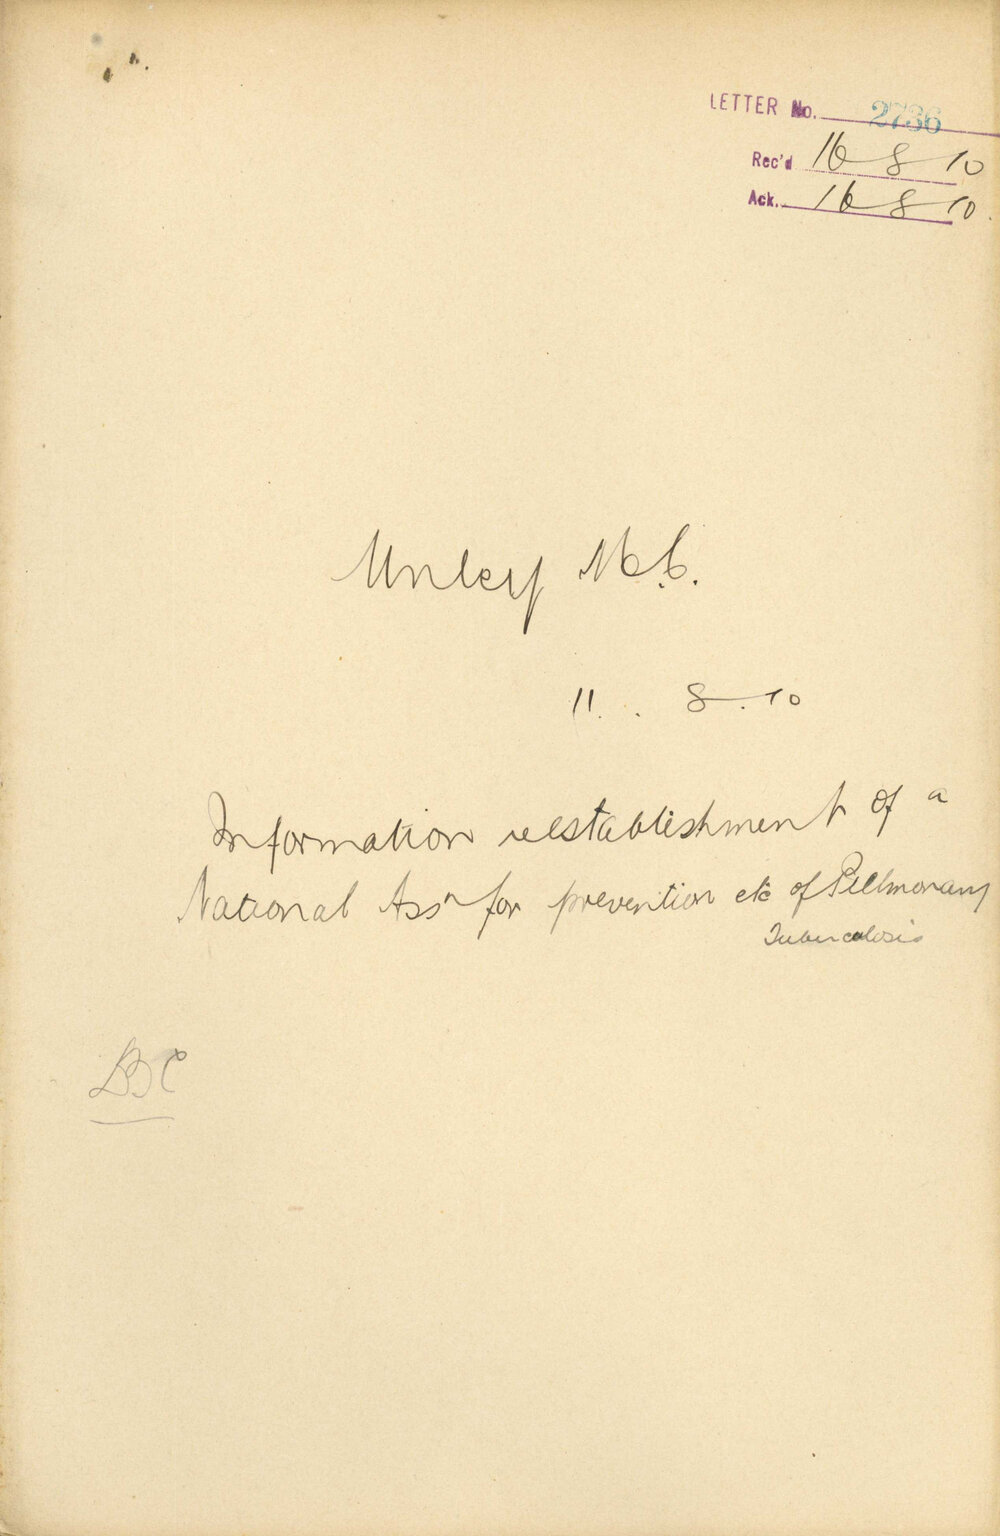 LETTER No. 2736
Rec'd 16 8 10
Ack. 16 8 10
Unley M.C.
11. . 8. 10
Information re establishment of a
National Assn for prevention etc of Pulmonary
Tuberculosis